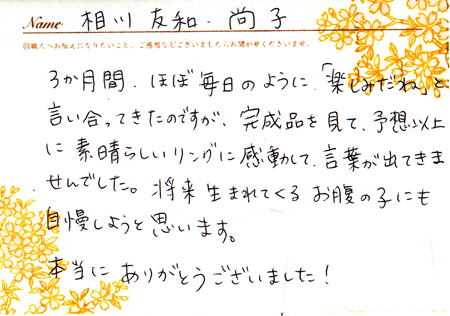 Name 相川 友和・尚子
◎職人へお伝えになりたいこと、ご感想などございましたらお聞かせくださいませ。
3か月間、ほぼ毎日のように、「楽しみだね」と
言い合ってきたのですが、完成品を見て、予想以上
に素晴らしいリングに感動して、言葉が出てきま
せんでした。将来生まれてくるお腹の子にも
自慢しようと思います。
本当にありがとうございました!